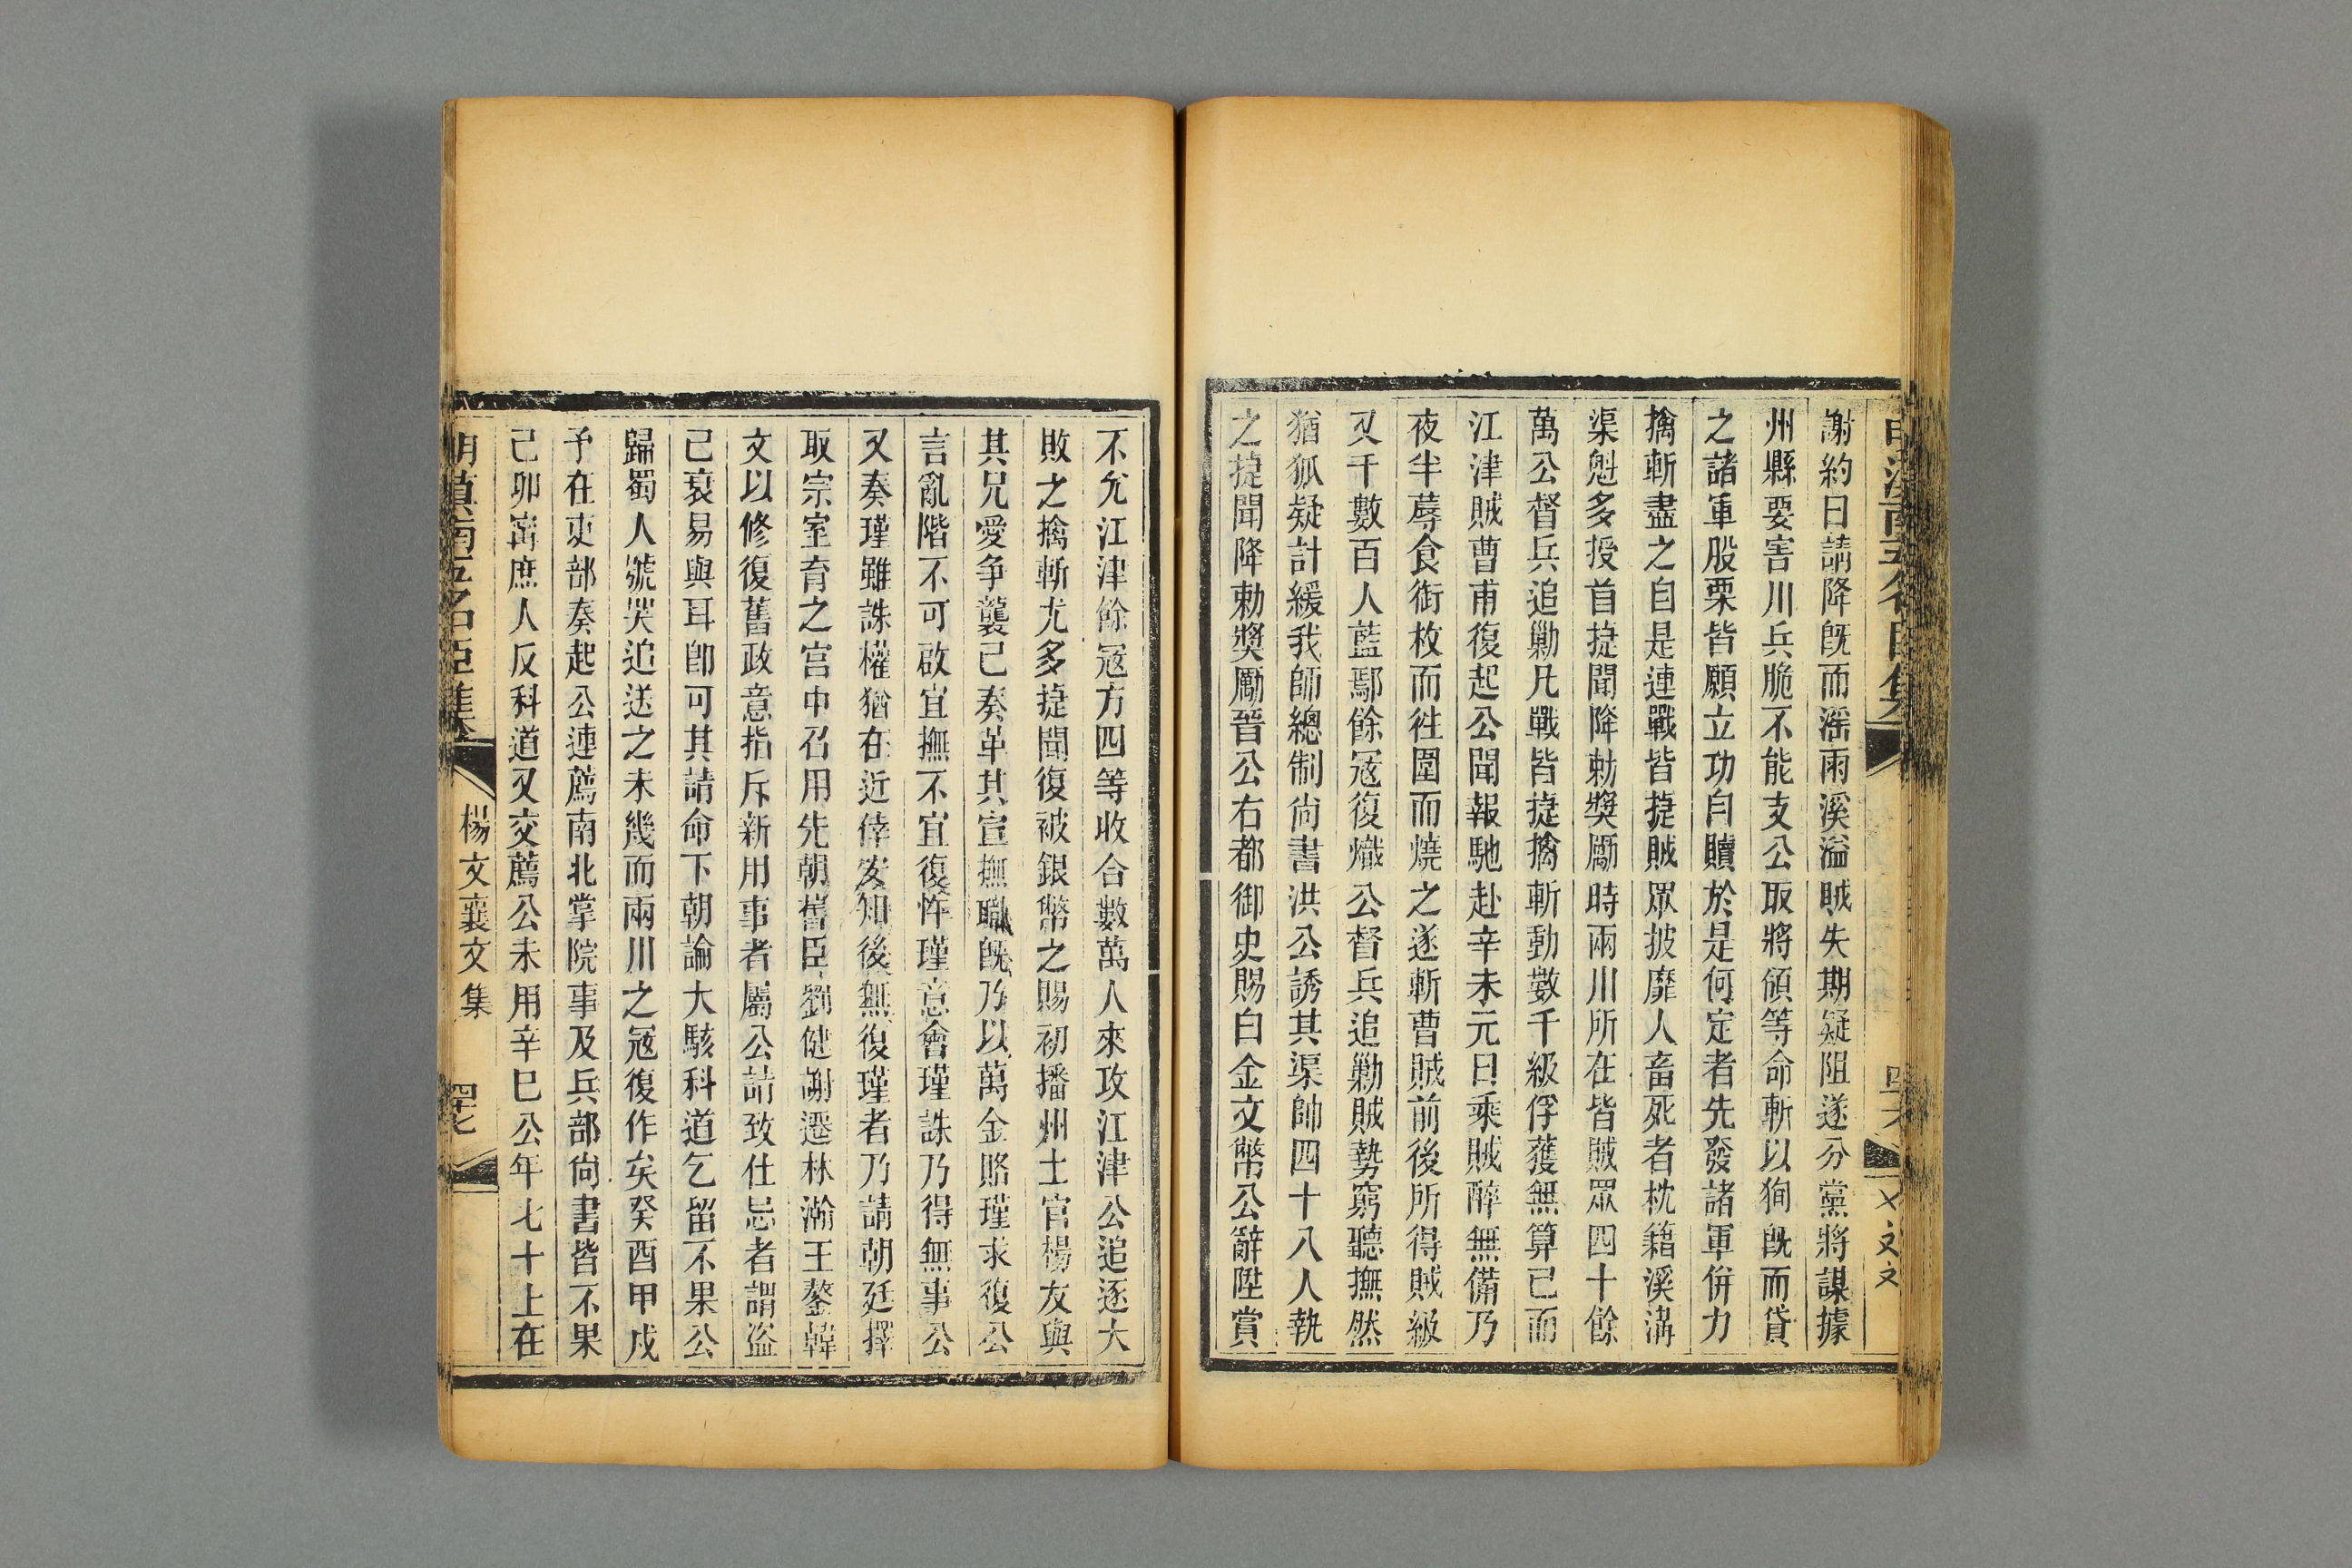 謝約日請降既而淫雨溪溢賊失期疑阻遂分黨將謀據
州縣要害川兵脆不能支公取將領等命斬以狥既而貸
之諸軍股栗皆願立功自贖於是何定者先發諸軍併力
擒斬盡之自是連戰皆捷賊眾披靡人畜死者枕籍溪溝
渠魁多授首捷聞降勅獎勵時兩川所在皆賊眾四十餘
萬公督兵追勦凡戰皆捷擒斬動數千級俘獲無算已而
江津賊曹甫復起公聞報馳赴辛未元日乘賊醉無備乃
夜半蓐食銜枚而徃圍而燒之遂斬曹賊前後所得賊級
又千數百人藍鄢餘冦復熾公督兵追勦賊勢窮聽撫然
猶狐疑計緩我師總制尚書洪公誘其渠帥四十八人執
之捷聞降勅獎勵晉公右都御史賜白金文幣公辭陞賞
不允江津餘冦方四等收合數萬人來攻江津公追逐大
敗之擒斬尤多捷聞復被銀幣之賜初播州土官楊友與
其兄愛争襲己奏革其宣撫職既乃以萬金賂瑾求復公
言亂階不可啟宜撫不宜復忤瑾意會瑾誅乃得無事公
又奏瑾雖誅權猶在近倖安知後無復瑾者乃請朝廷擇
取宗室育之宮中召用先朝舊臣劉健謝遷林瀚王鏊韓
文以修復舊政意指斥新用事者屬公請致仕忌者謂盜
己衰易與耳卽可其請命下朝論大駭科道乞留不果公
歸蜀人號哭追送之未幾而兩川之冦復作矣癸酉甲戌
予在吏部奏起公連薦南北掌院事及兵部尚書皆不果
己卯寗庶人反科道又交薦公未用辛巳公年七十上在
明滇南五名臣集
楊文襄文集
四七